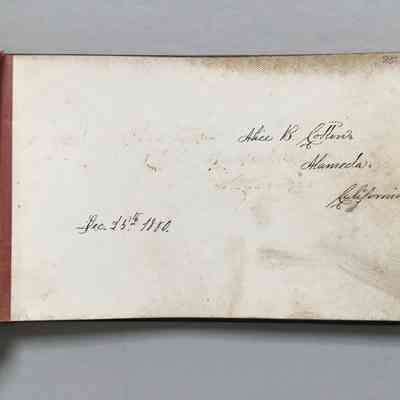 Alice B. Collins
Alameda.
California
Dec. 25th 1880.